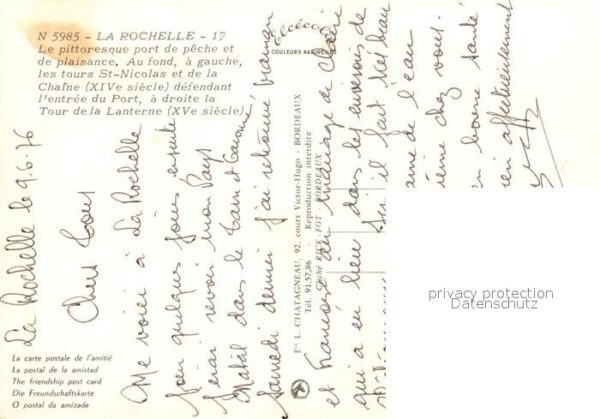 N 5985 - LA ROCHELLE - 17
Le pittoresque port de pêche et
de plaisance. Au fond, à gauche,
les tours St-Nicolas et de la
Chaîne (XIVe siècle) défendant
l'entrée du Port, à droite la
Tour de la Lanterne (XVe siècle)
COULEURS NATURELLES
La Rochelle le 9.6.76
Chers tous
Me voici à La Rochelle
pour quelques jours ensuite
irai revoir mon Pays
Natal dans le Tarn et Garonne,
Samedi dernier j'ai retrouvé maman
et Françoise au mariage de
qui a eu lieu dans les environs de
ici il fait très beau
l'eau
même chez vous.
bonne santé
bien affectueusement
Ets L. CHATAGNEAU, 92, cours Victor-Hugo - BORDEAUX
Tél. 91.57.96 - Reproduction interdite
Cliché RICK - FOT - BORDEAUX
La carte postale de l'amitié
La postal de la amistad
The friendship post card
Die Freundschaftskarte
O postal da amizade
privacy protection
Datenschutz